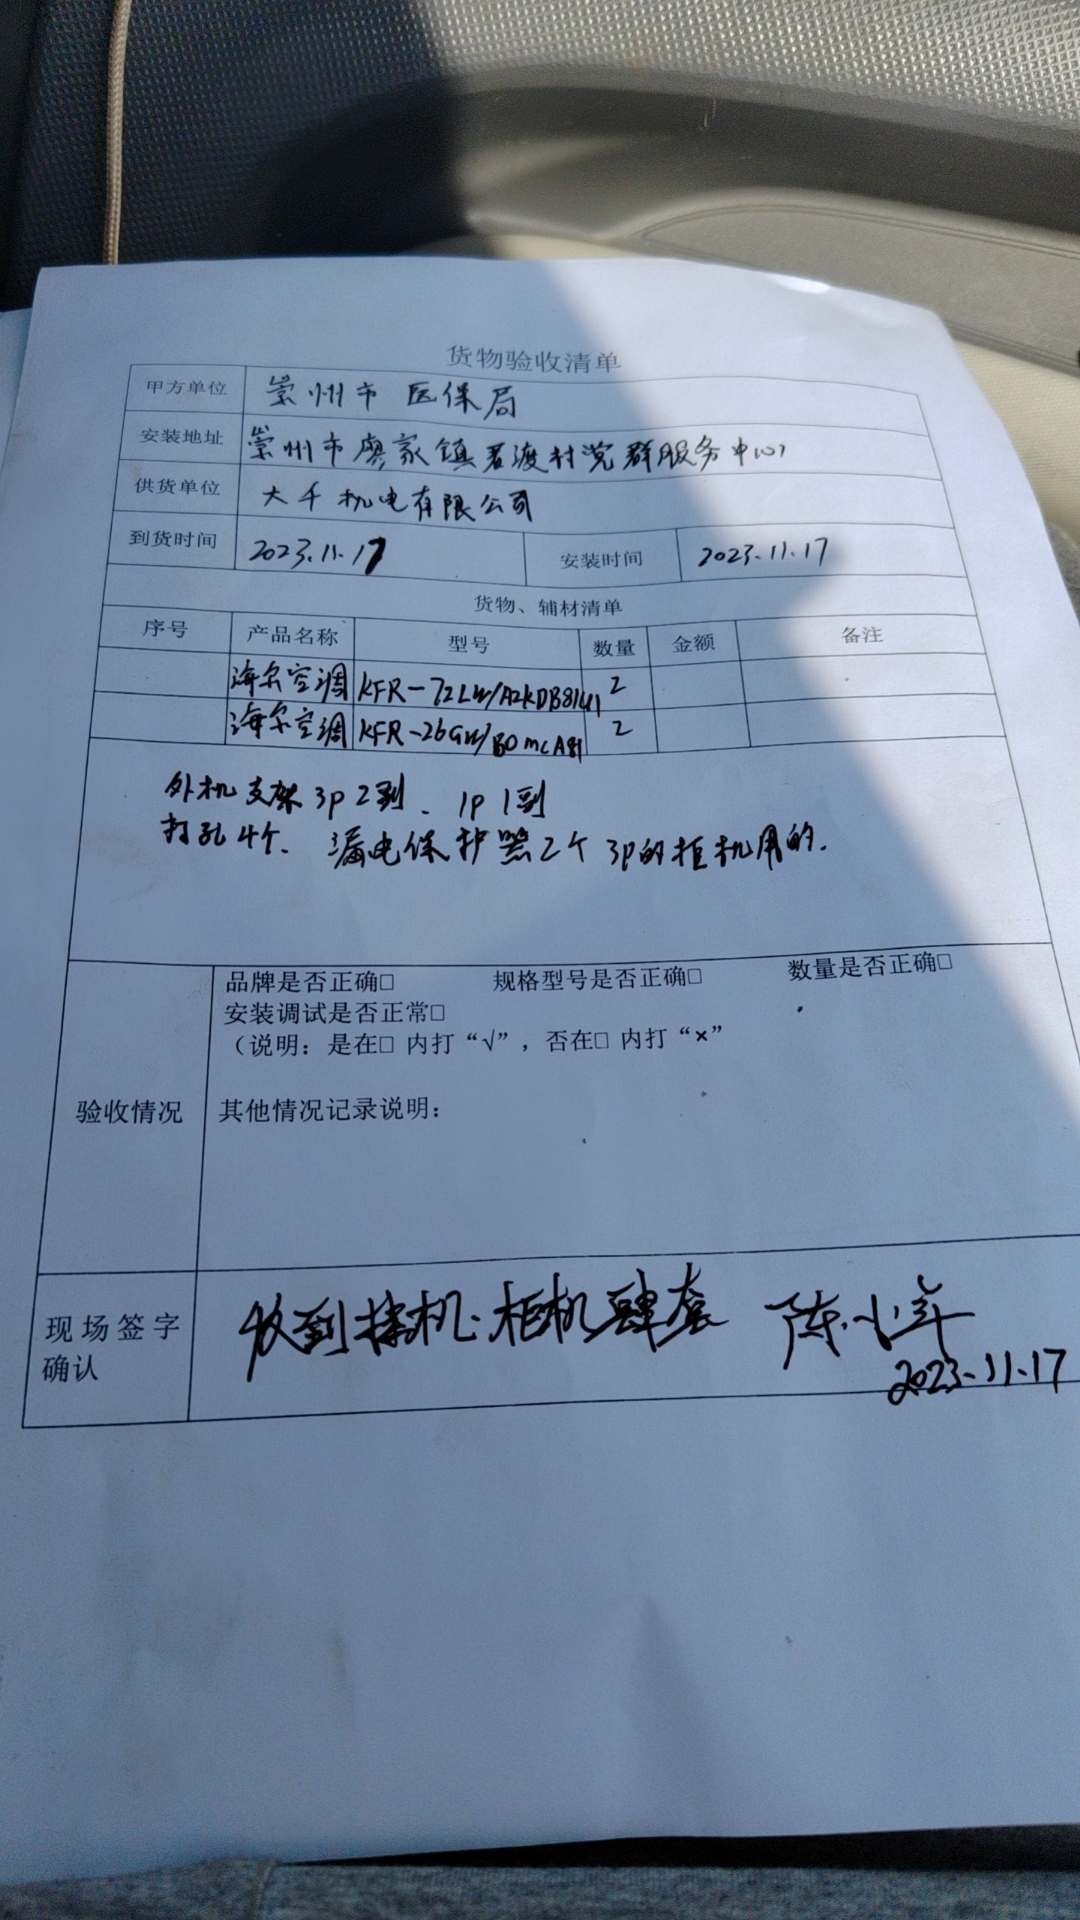 货物验收清单
甲方单位 崇州市医保局
安装地址 崇州市廖家镇君渡村党群服务中心
供货单位 大千机电有限公司
到货时间 2023.11.17 安装时间 2023.11.17
货物、辅材清单
序号 产品名称 型号 数量 金额 备注
海尔空调 KFR-72LW/A2KDB81U1 2
海尔空调 KFR-26GW/B0MCA81 2
外机支架3P2到、1P1到
打孔4个、漏电保护器2个3P的柜机用的.
品牌是否正确□ 规格型号是否正确□ 数量是否正确□
安装调试是否正常□
(说明：是在□ 内打“√”，否在□ 内打“×”
验收情况 其他情况记录说明：
现场签字确认 收到挂机.柜机肆套 陈小年
2023.11.17